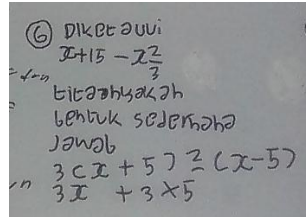 ⑥ Diketauvi
x+15 - x 2/3
titanhyakah
bentuk sederhana
Jawab
3(x + 5) 2 = (x-5)
3x + 3 x 5